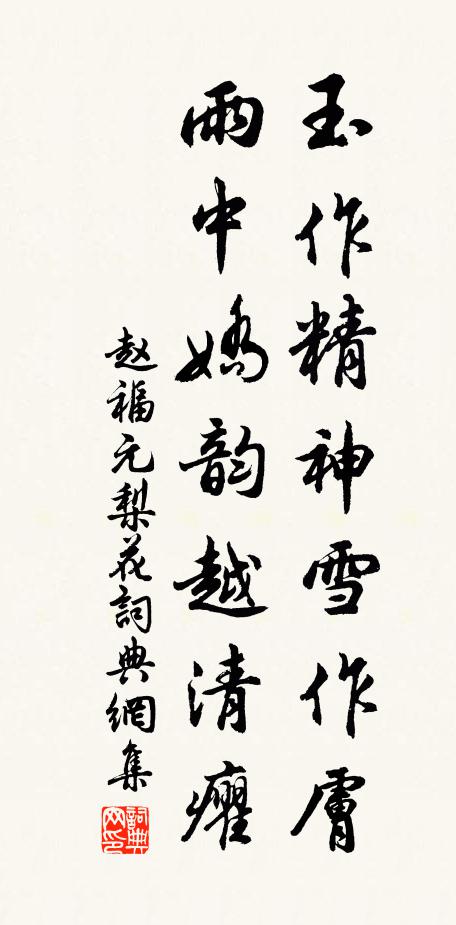 玉作精神雪作膚
雨中嬌韵越清癯
赵福元梨花詞典網集
詞典网印